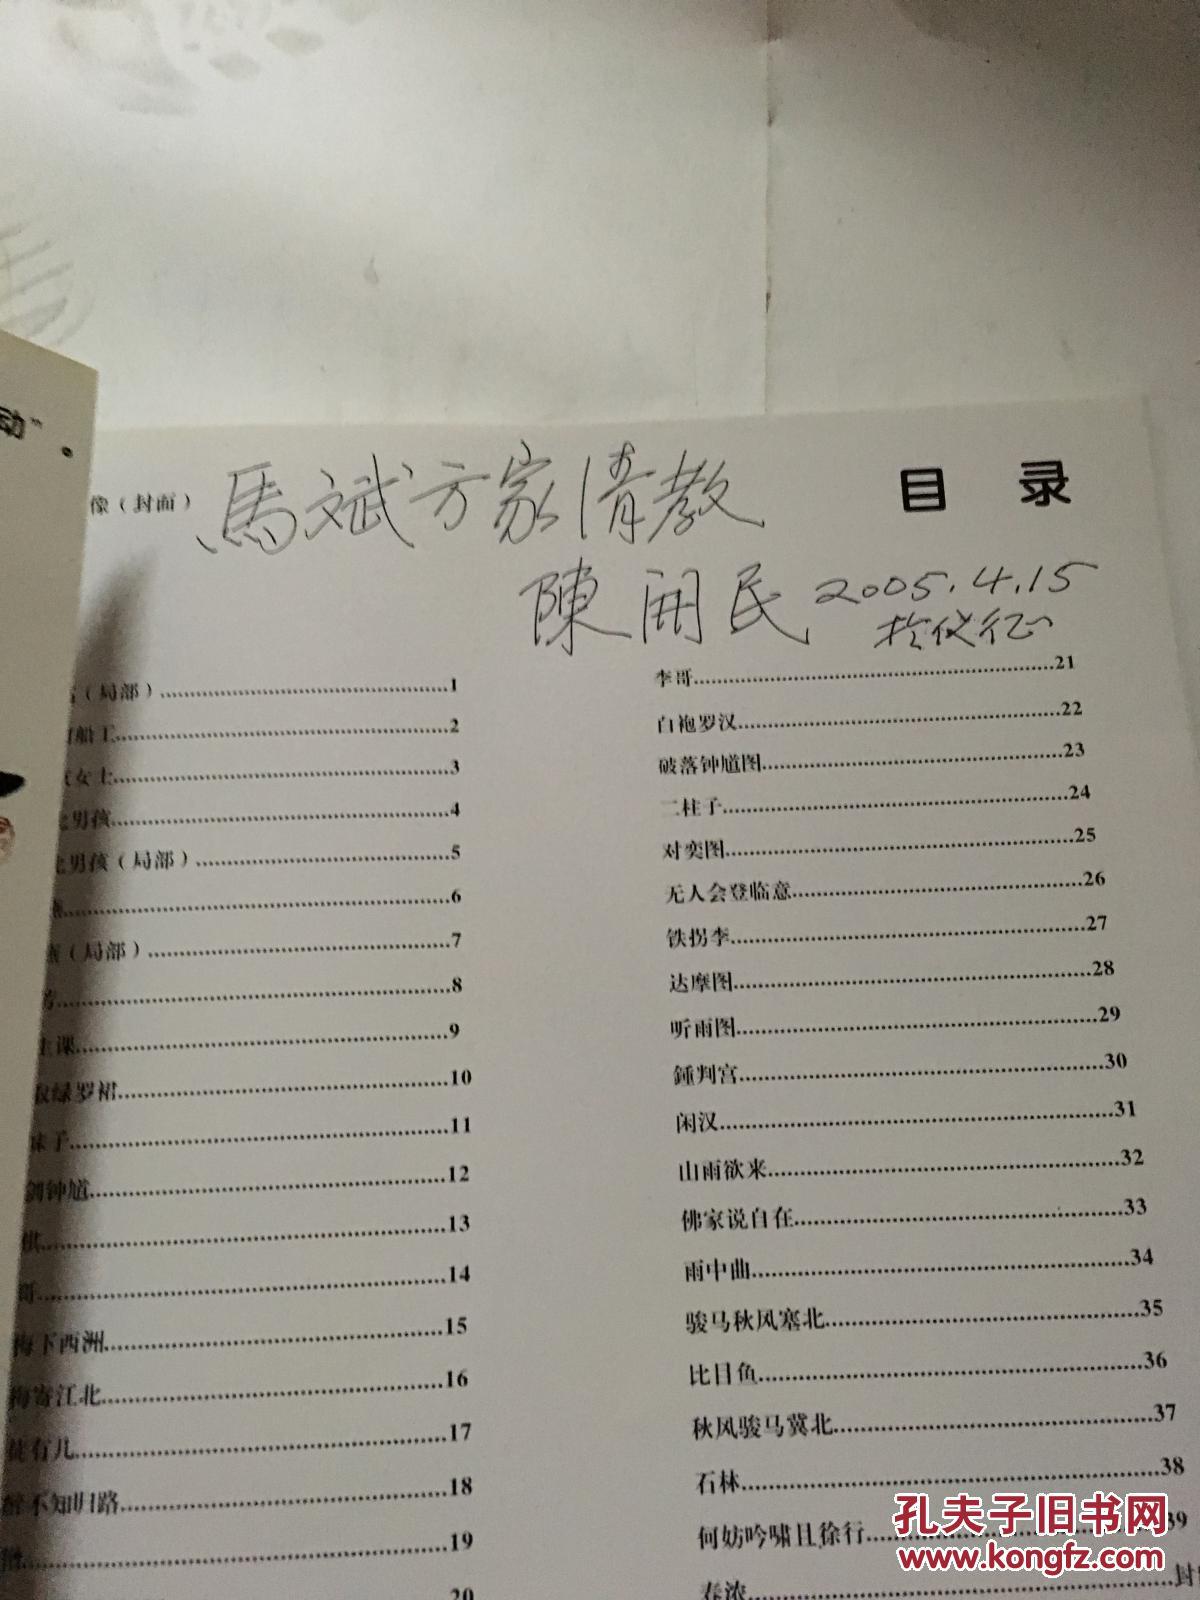 动”。
像（封面）
馬斌方家清教
目录
陳開民 2005.4.15
於仪征
（局部）……1
船工……2
女士……3
男孩……4
男孩（局部）……5
……6
（局部）……7
……8
课……9
绿罗裙……10
妹子……11
剑钟馗……12
棋……13
哥……14
梅下西洲……15
梅寄江北……16
有儿……17
醉不知归路……18
……19
20
李哥……21
白袍罗汉……22
破落钟馗图……23
二柱子……24
对奕图……25
无人会登临意……26
铁拐李……27
达摩图……28
听雨图……29
鍾判官……30
闲汉……31
山雨欲来……32
佛家说自在……33
雨中曲……34
骏马秋风塞北……35
比目鱼……36
秋风骏马冀北……37
石林……38
何妨吟啸且徐行……39
春浓……封
孔夫子旧书网
www.kongfz.com